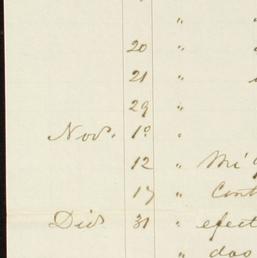 " "
20 "
21 "
29 "
Nov. 1º "
12 " Mi
17 " Cont
Dicb 31 " efect
" dos